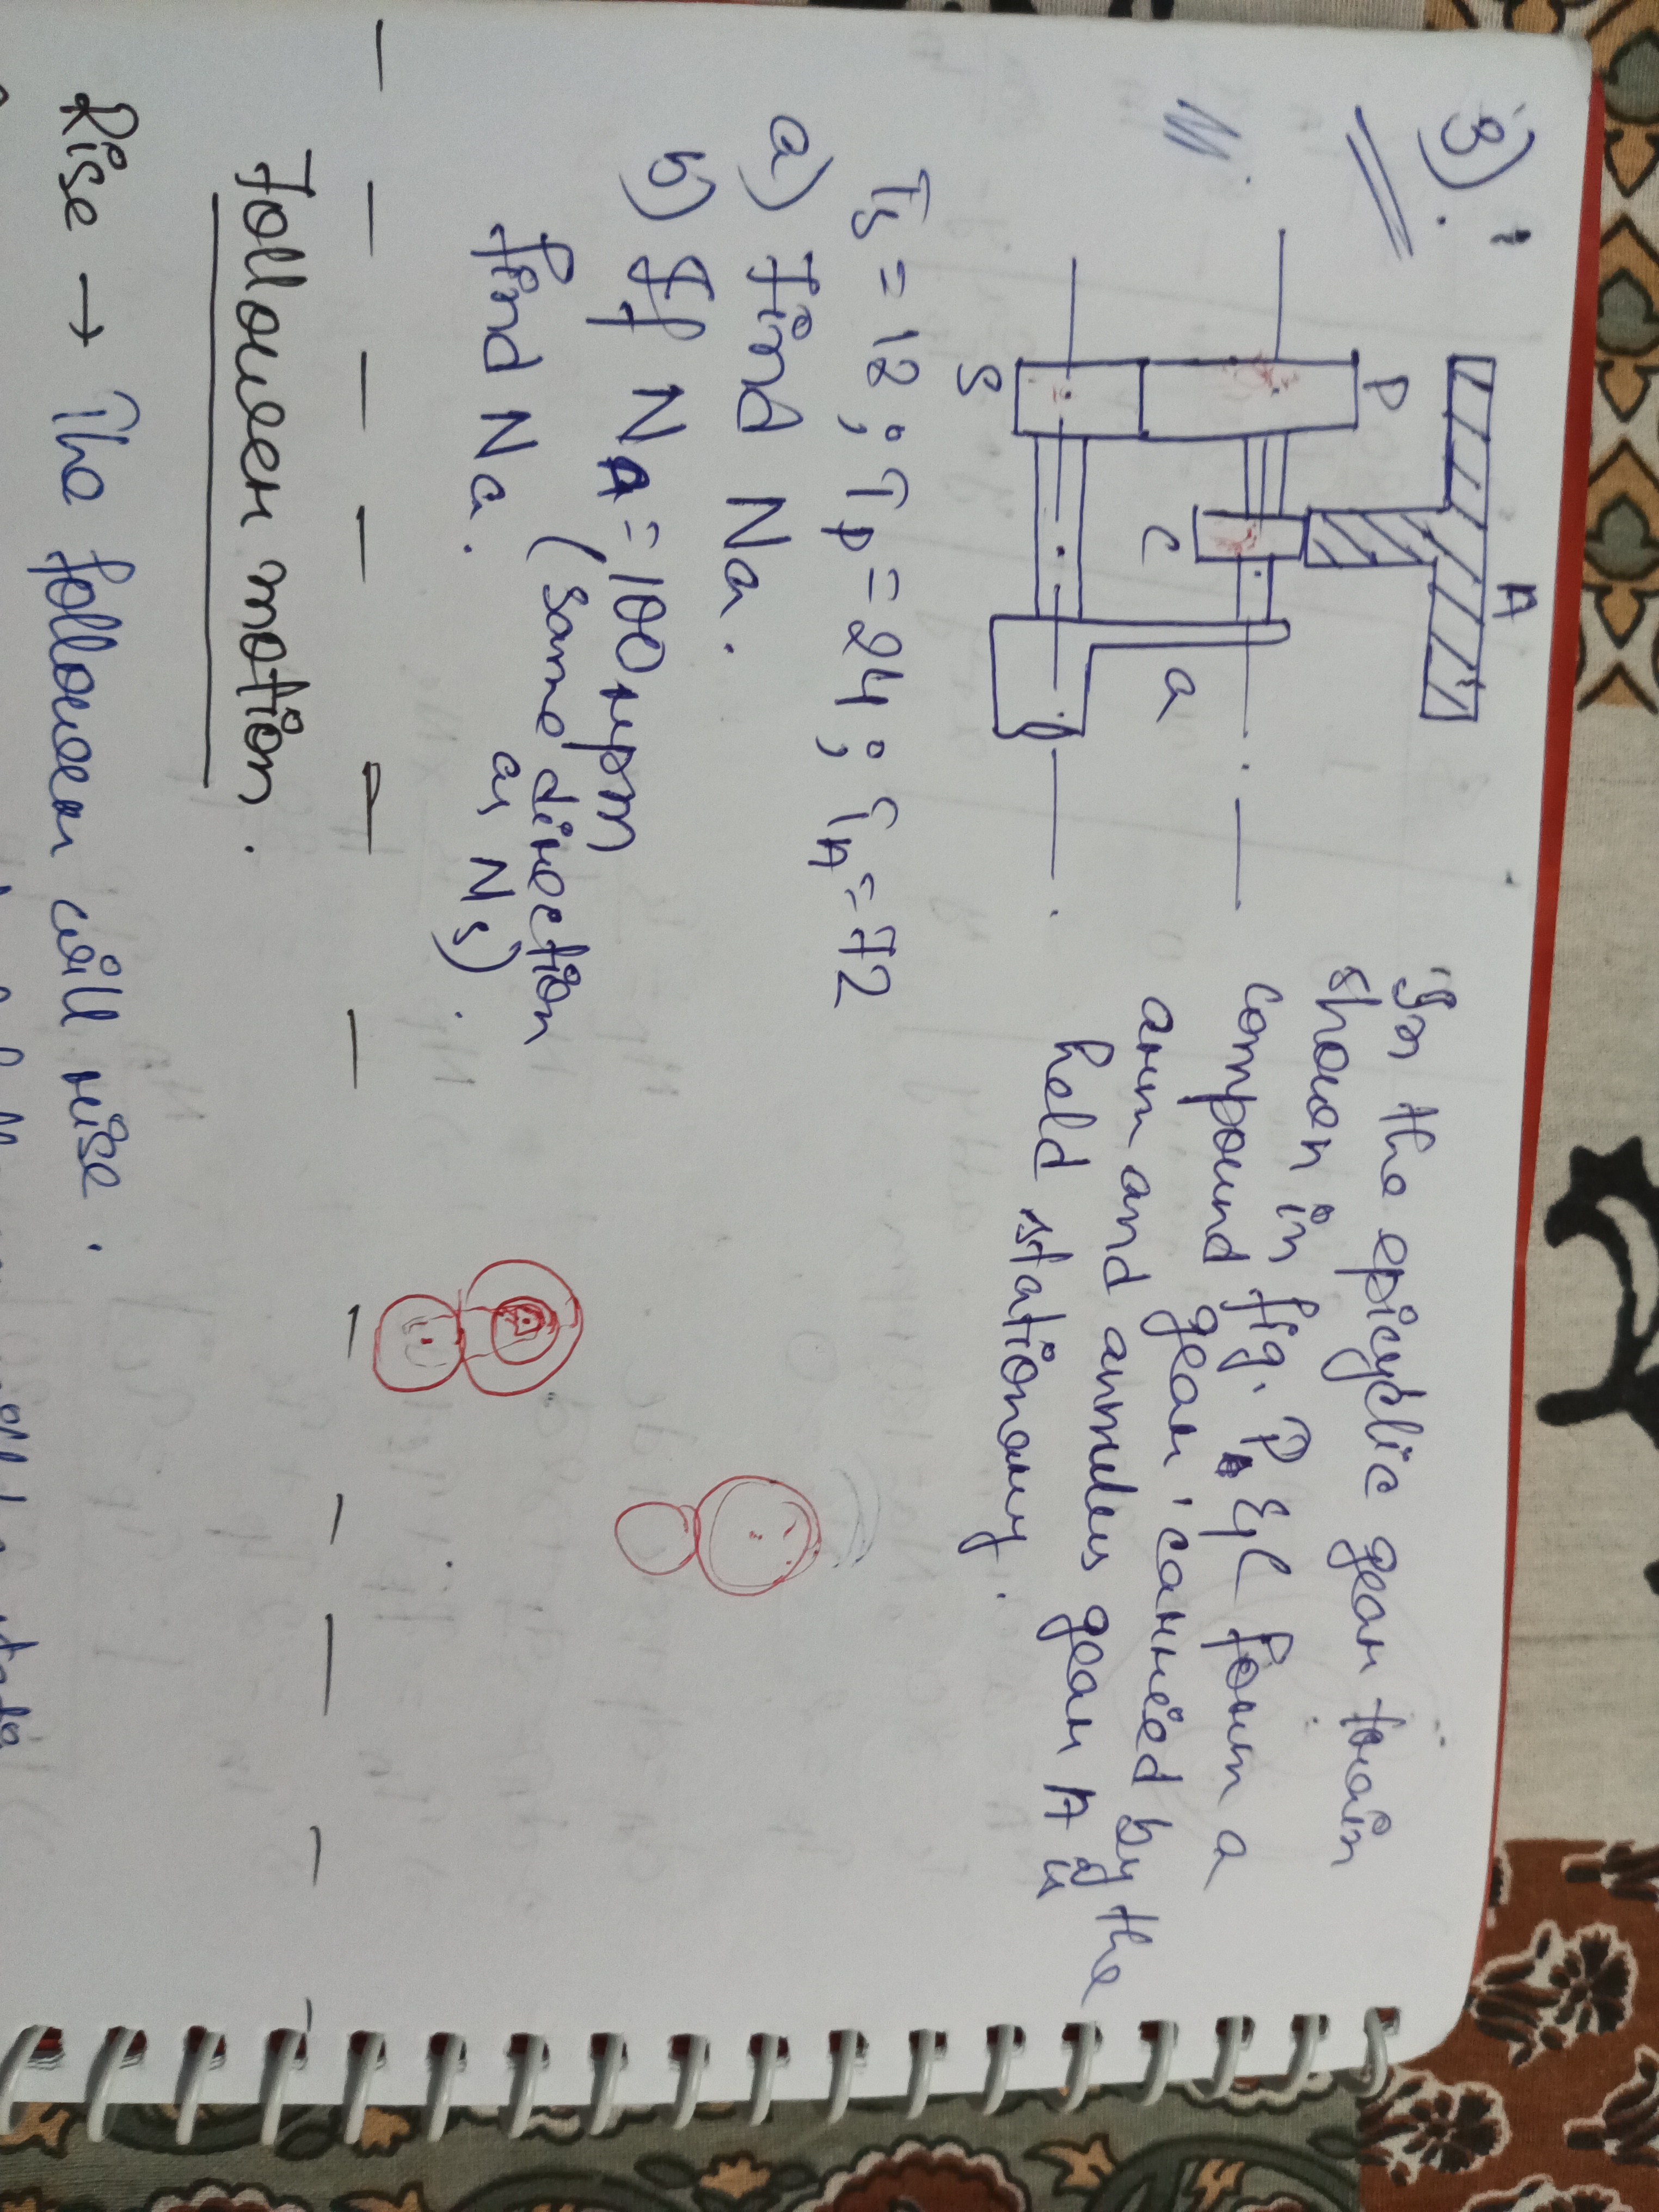 3).
P
A
S
C
a
In the epicyclic gear train
shown in fig. P & C form a
compound gear, carried by the
arm and annulus gear A is
held stationary.
Ts = 12 ; TP = 24 ; TA = 72
a) Find Na.
b) If NA = 100 rpm
(same direction
as Ns)
find Na.
Follower motion.
Rise → The follower will rise.